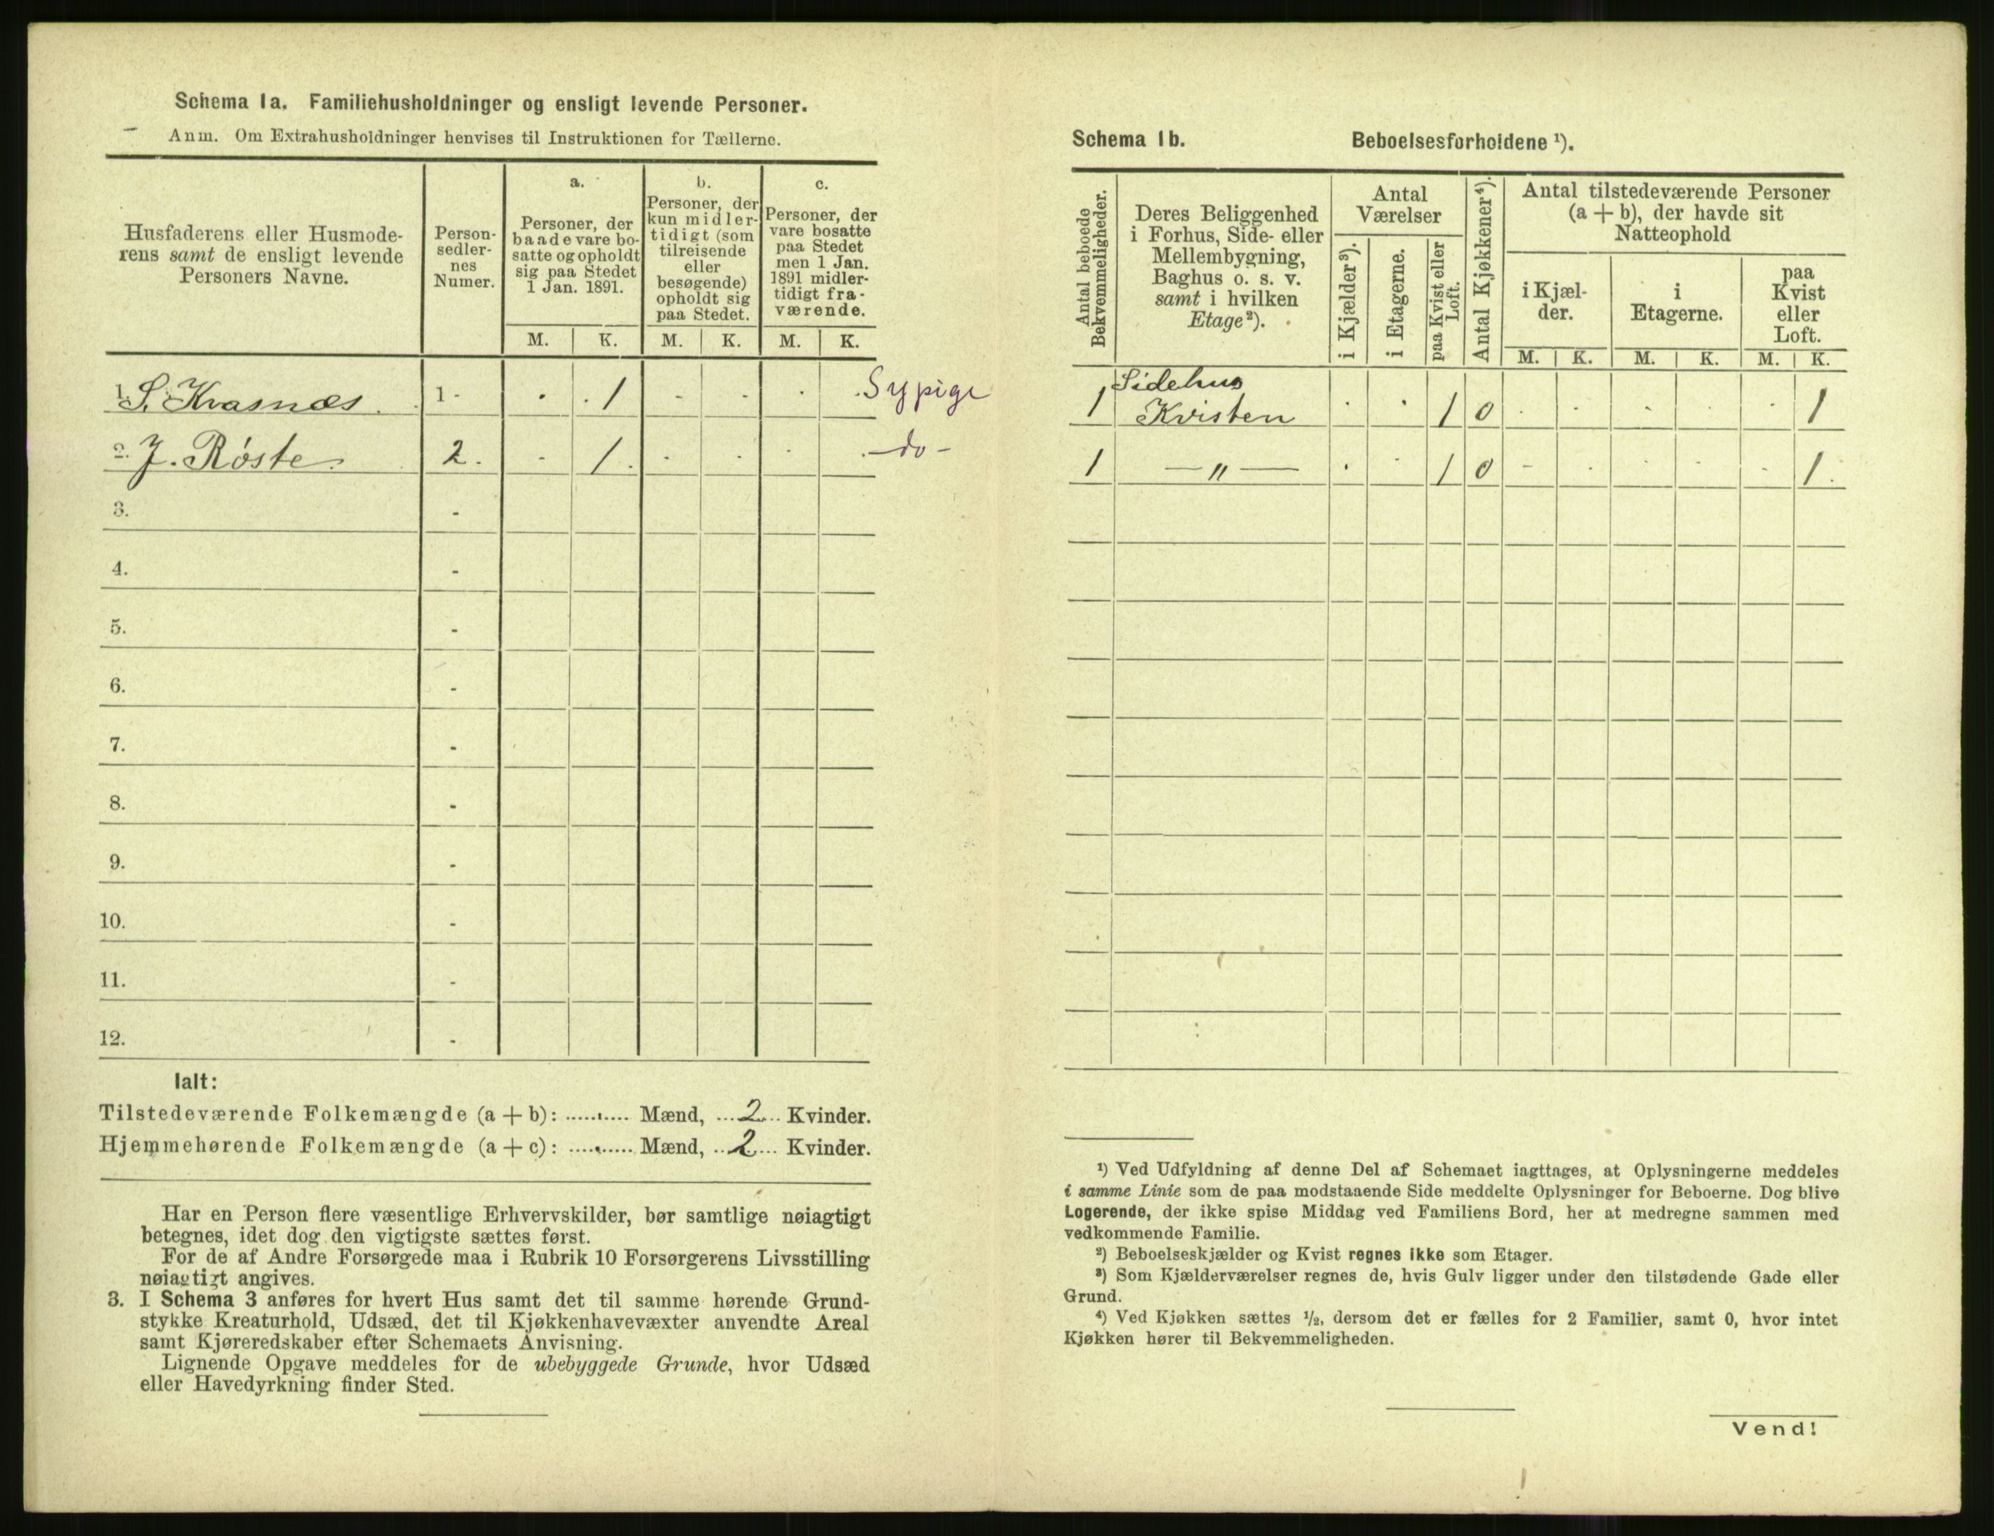 Schema 1a. Familiehusholdninger og ensligt levende Personer.
Anm. Om Extrahusholdninger henvises til Instruktionen for Tællerne.
Husfaderens eller Husmoderens samt de ensligt levende Personers Navne.
Person-
sedler-
nes
Numer.
a.
Personer, der
baade vare bo-
satte og opholdt
sig paa Stedet
1 Jan. 1891.
b.
Personer, der
kun midler-
tidigt (som
tilreisende
eller
besøgende)
opholdt sig
paa Stedet.
c.
Personer, der
vare bosatte
paa Stedet
men 1 Jan.
1891 midler-
tidigt fra-
værende.
M. K. M. K. M. K.
1. S. Kvasnæs. 1 - . . 1 - - . . Sypige
2. J. Røste. 2. - 1. . . . . - do -
3. -
4. -
5. -
6. -
7. -
8. -
9. -
10. -
11. -
12. -
Ialt:
Tilstedeværende Folkemængde (a + b): ........... Mænd, ... 2 ... Kvinder.
Hjemmehørende Folkemængde (a + c): ........... Mænd, ... 2 ... Kvinder.
Har en Person flere væsentlige Erhvervskilder, bør samtlige nøiagtigt
betegnes, idet dog den vigtigste sættes først.
For de af Andre Forsørgede maa i Rubrik 10 Forsørgerens Livsstilling
nøiagtigt angives.
3. I Schema 3 anføres for hvert Hus samt det til samme hørende Grund-
stykke Kreaturhold, Udsæd, det til Kjøkkenhavevæxter anvendte Areal
samt Kjøreredskaber efter Schemaets Anvisning.
Lignende Opgave meddeles for de ubebyggede Grunde, hvor Udsæd
eller Havedyrkning finder Sted.
Schema 1b. Beboelsesforholdene ¹).
Antal beboede
Bekvemmeligheder.
Deres Beliggenhed
i Forhus, Side- eller
Mellembygning,
Baghus o. s. v.
samt i hvilken
Etage²).
Antal
Værelser
i Kjælder³).
i Etagerne.
paa Kvist eller
Loft.
Antal Kjøkkener⁴).
Antal tilstedeværende Personer
(a + b), der havde sit
Natteophold
i Kjæl-
der.
i
Etagerne.
paa
Kvist
eller
Loft.
M. K. M. K. M. K.
Sidehus
1 Kvisten . . 1 0 . . . . . 1
1 — " — . . 1 0 - . . . . 1.
¹) Ved Udfyldning af denne Del af Schemaet iagttages, at Oplysningerne meddeles
i samme Linie som de paa modstaaende Side meddelte Oplysninger for Beboerne. Dog blive
Logerende, der ikke spise Middag ved Familiens Bord, her at medregne sammen med
vedkommende Familie.
²) Beboelseskjælder og Kvist regnes ikke som Etager.
³) Som Kjælderværelser regnes de, hvis Gulv ligger under den tilstødende Gade eller
Grund.
⁴) Ved Kjøkken sættes ½, dersom det er fælles for 2 Familier, samt 0, hvor intet
Kjøkken hører til Bekvemmeligheden.
Vend!